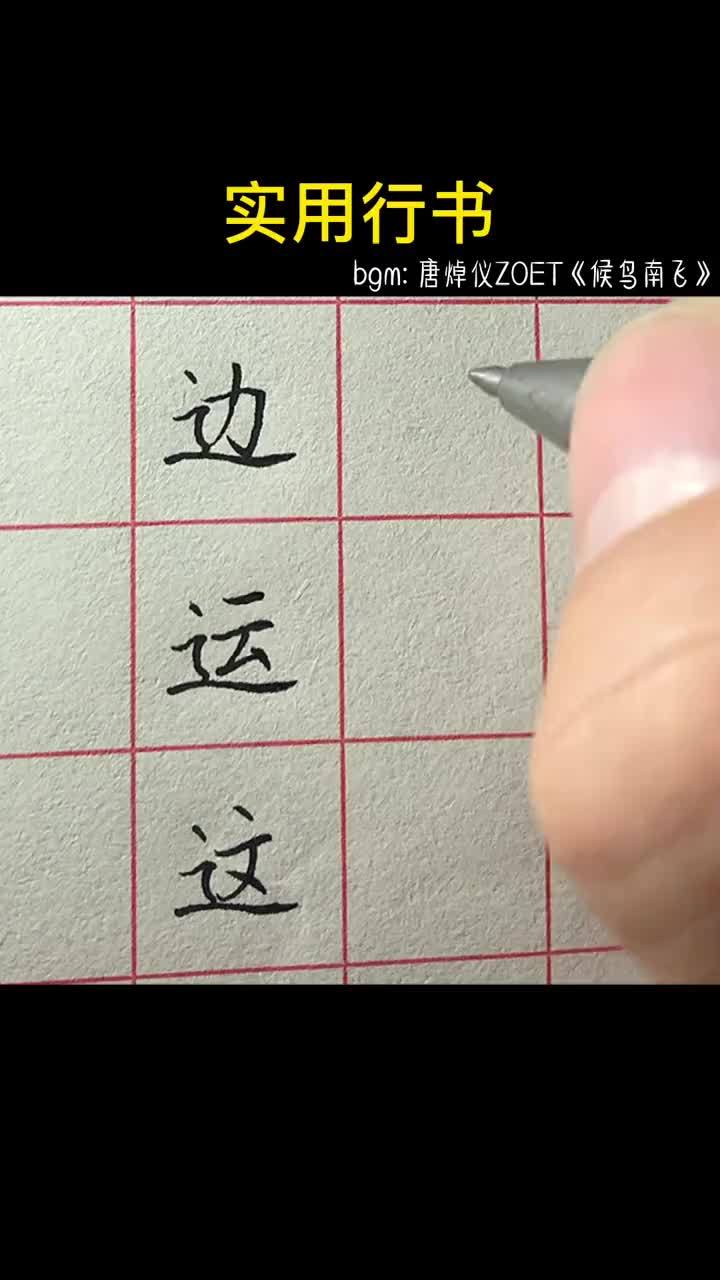 实用行书
bgm: 唐焯仪ZOET《候鸟南飞》
边
运
这